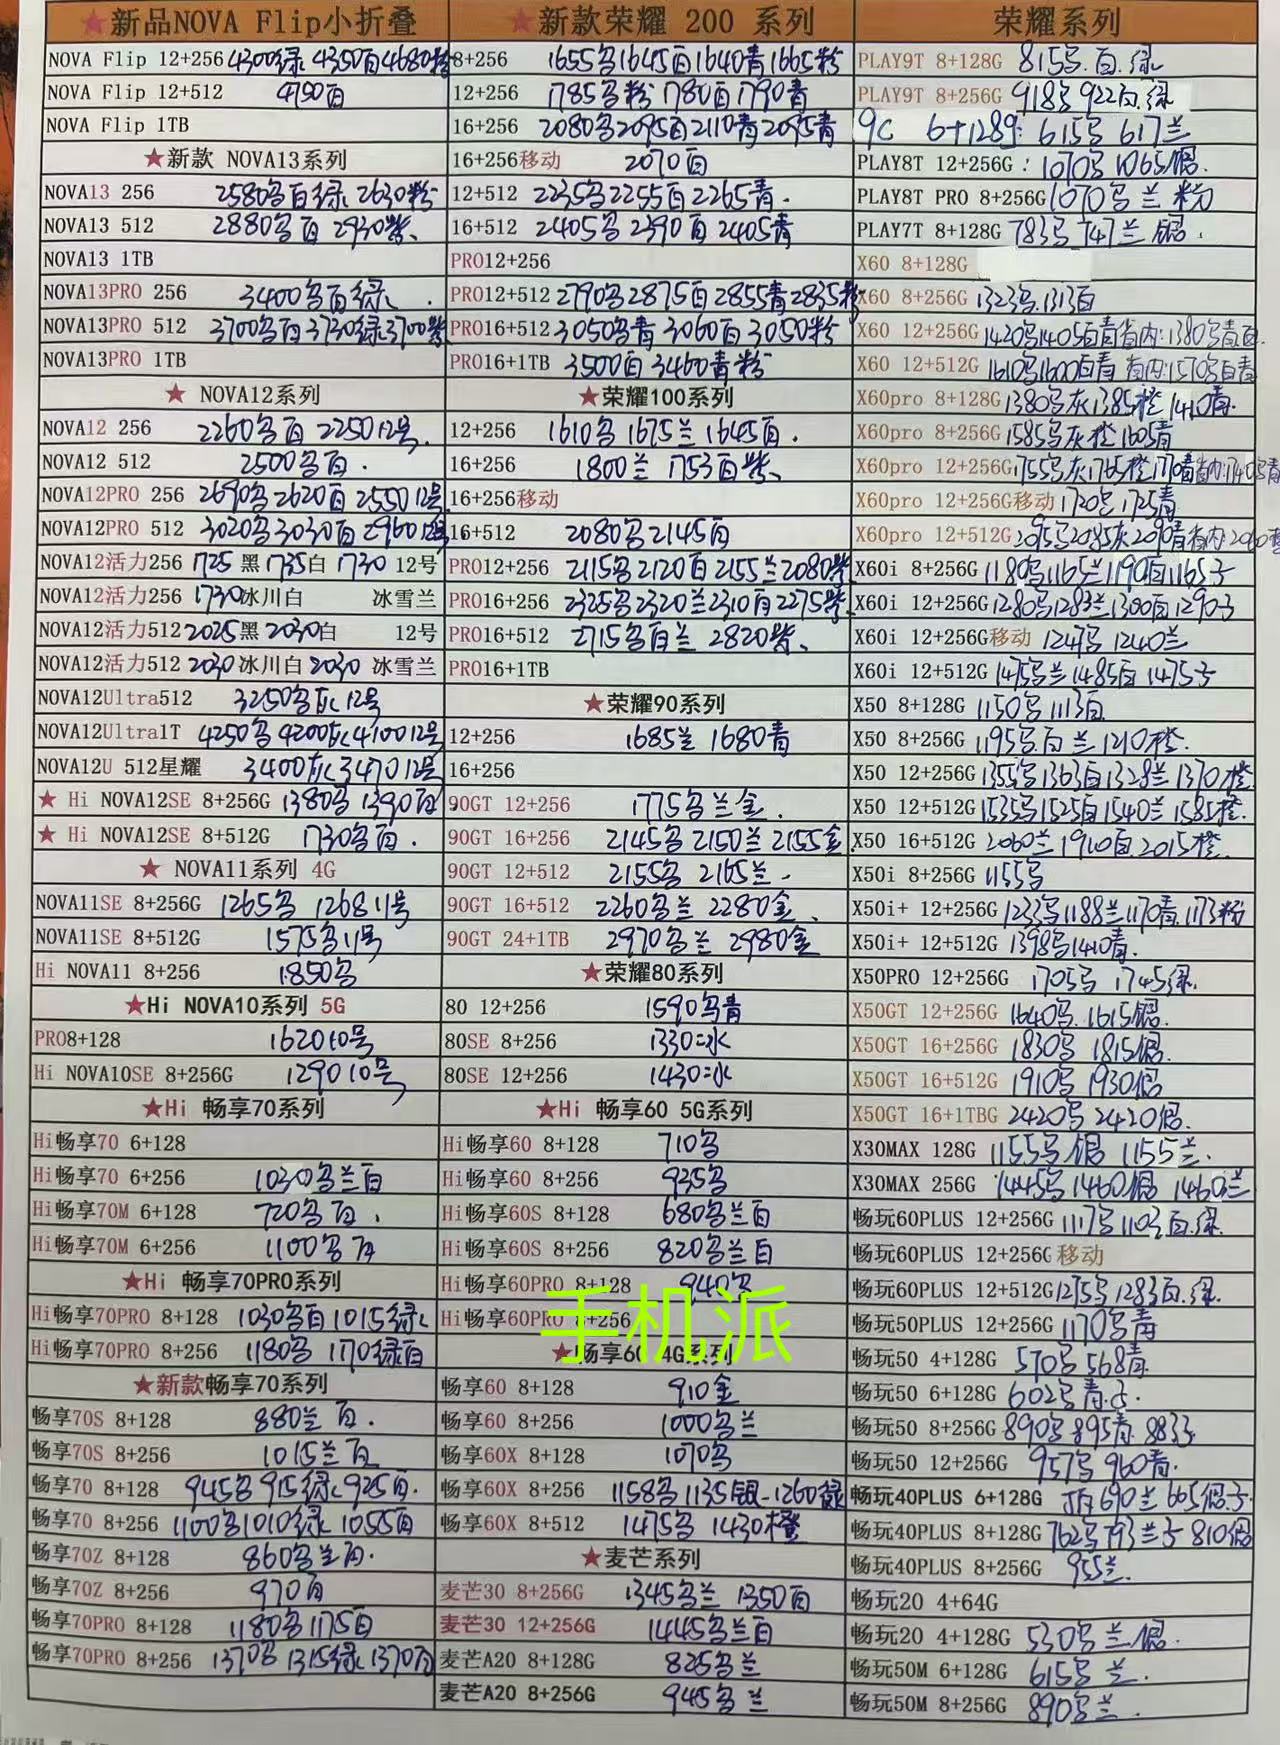 ★新品NOVA Flip小折叠
NOVA Flip 12+256 4300绿 4350白 4680粉
NOVA Flip 12+512 4750白
NOVA Flip 1TB
★新款 NOVA13系列
NOVA13 256 2580白绿 2630粉
NOVA13 512 2880白 2930紫、
NOVA13 1TB
NOVA13PRO 256 3400白绿、
NOVA13PRO 512 3700白3730绿3700紫
NOVA13PRO 1TB
★ NOVA12系列
NOVA12 256 2260白 2250 12号.
NOVA12 512 2500白.
NOVA12PRO 256 2690 2620白 2550 12号
NOVA12PRO 512 3020 3030白 2960 12号
NOVA12活力256 1725 黑 1735白 1730 12号
NOVA12活力256 1730冰川白 冰雪兰
NOVA12活力512 2025黑 2030白 12号
NOVA12活力512 2030冰川白 2030 冰雪兰
NOVA12Ultra512 3250灰 12号
NOVA12Ultra1T 4250 4200灰 4100 12号
NOVA12U 512星耀 3400灰 3470 12号
★ Hi NOVA12SE 8+256G 1380 1390白
★ Hi NOVA12SE 8+512G 1730白.
★ NOVA11系列 4G
NOVA11SE 8+256G 1265 1268 11号
NOVA11SE 8+512G 1575 11号
Hi NOVA11 8+256 1850
★Hi NOVA10系列 5G
PRO8+128 1620 10号
Hi NOVA10SE 8+256G 1290 10号
★Hi 畅享70系列
Hi畅享70 6+128
Hi畅享70 6+256 1030兰白
Hi畅享70M 6+128 720白.
Hi畅享70M 6+256 1100
★Hi 畅享70PRO系列
Hi畅享70PRO 8+128 1030白 1015绿
Hi畅享70PRO 8+256 1180 1170绿白
★新款畅享70系列
畅享70S 8+128 880兰 白.
畅享70S 8+256 1015兰 白
畅享70 8+128 945 915绿 925白.
畅享70 8+256 1100 1010绿 1055白
畅享70Z 8+128 860兰白.
畅享70Z 8+256 970白
畅享70PRO 8+128 1180 1175白
畅享70PRO 8+256 1370 1315绿 1370白
★新款荣耀 200 系列
8+256 1655 1645白 1640青 1665粉
12+256 1785粉 1780白 1790青
16+256 2080 2095白 2110青 2095青
16+256移动 2070白
12+512 2235 2255白 2265青.
16+512 2405 2390白 2405青
PRO12+256
PRO12+512 2790 2875白 2855青 2835粉
PRO16+512 3050青 3060白 3050粉
PRO16+1TB 3500白 3460青粉
★荣耀100系列
12+256 1610 1675兰 1645白.
16+256 1800兰 1753白紫、
16+256移动
16+512 2080 2145白
PRO12+256 2115 2120白 2155兰 2080紫
PRO16+256 2325 2320兰 2310白 2275紫
PRO16+512 2715白兰 2820紫、
PRO16+1TB
★荣耀90系列
12+256 1685兰 1680青
16+256
90GT 12+256 1775兰金.
90GT 16+256 2145 2150兰 2155金
90GT 12+512 2155 2165兰
90GT 16+512 2260兰 2280金、
90GT 24+1TB 2970兰 2980金
★荣耀80系列
80 12+256 1590青
80SE 8+256 1330 水
80SE 12+256 1430 水
★Hi 畅享60 5G系列
Hi畅享60 8+128 710
Hi畅享60 8+256 935
Hi畅享60S 8+128 680兰白
Hi畅享60S 8+256 820兰白
Hi畅享60PRO 8+128 940
Hi畅享60PRO 8+256
手机派
★畅享60 4G系列
畅享60 8+128 910金
畅享60 8+256 1000兰
畅享60X 8+128 1070
畅享60X 8+256 1158 1135银 1260绿
畅享60X 8+512 1475 1430橙
★麦芒系列
麦芒30 8+256G 1345兰 1350白
麦芒30 12+256G 1445兰白
麦芒A20 8+128G 825兰
麦芒A20 8+256G 945兰
荣耀系列
PLAY9T 8+128G 815.白.绿
PLAY9T 8+256G 918 922白绿
9C 6+128g: 615 617兰
PLAY8T 12+256G: 1070 1065银.
PLAY8T PRO 8+256G 1070兰 粉
PLAY7T 8+128G 783 747兰 银.
X60 8+128G
X60 8+256G 1323.1313白
X60 12+256G 1420 1405白青省内:1380青白
X60 12+512G 1610 1600白青 省内:1570白青
X60pro 8+128G 1380灰 1385橙 1410青.
X60pro 8+256G 1585灰橙 1605青
X60pro 12+256G 1755灰 1765橙 1770青省内:1740青
X60pro 12+256G移动 1720 1725青
X60pro 12+512G 2095 2085灰 2090青省内:2060
X60i 8+256G 1180 1165兰 1190白 1165子
X60i 12+256G 1280 1283兰 1300白 1290子
X60i 12+256G移动 1247 1240兰
X60i 12+512G 1475兰 1485白 1475子
X50 8+128G 1150 1113白
X50 8+256G 1195白兰 1210橙.
X50 12+256G 1355 1363白 1328兰 1370橙
X50 12+512G 1535 1525白 1540兰 1585橙.
X50 16+512G 2060兰 1910白 2015橙.
X50i 8+256G 1155
X50i+ 12+256G 1233 1188兰 1170青 1173粉
X50i+ 12+512G 1398 1410青.
X50PRO 12+256G 1705 1745绿.
X50GT 12+256G 1640. 1615银.
X50GT 16+256G 1830 1815银.
X50GT 16+512G 1910 1930银
X50GT 16+1TBG 2420 2420银.
X30MAX 128G 1155银 1155兰.
X30MAX 256G 1445 1460银 1460兰
畅玩60PLUS 12+256G 1117 1103白.绿
畅玩60PLUS 12+256G 移动
畅玩60PLUS 12+512G 1275 1283白.绿.
畅玩50PLUS 12+256G 1170青
畅玩50 4+128G 570 568青
畅玩50 6+128G 602青.子.
畅玩50 8+256G 890 895青 883子
畅玩50 12+256G 957 960青.
畅玩40PLUS 6+128G 690兰 665银.子
畅玩40PLUS 8+128G 762 793兰子 810银
畅玩40PLUS 8+256G 955兰.
畅玩20 4+64G
畅玩20 4+128G 530兰银.
畅玩50M 6+128G 615 兰.
畅玩50M 8+256G 890兰.